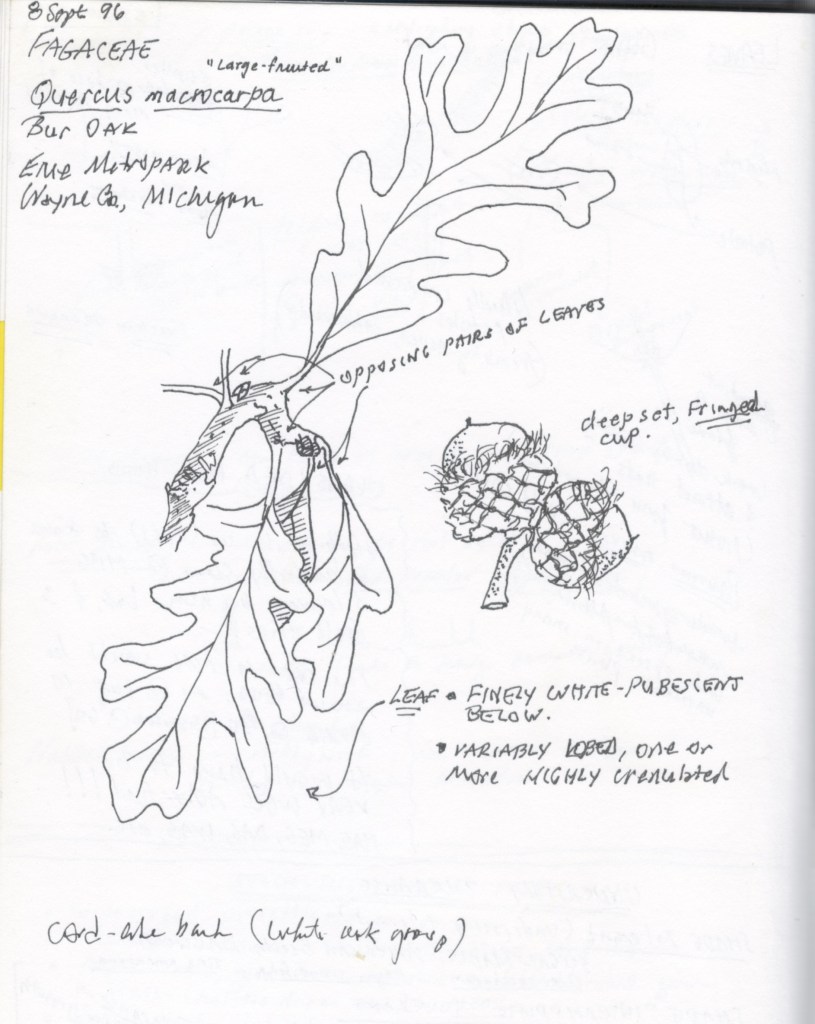 8 Sept 96
FAGACEAE
"Large-fruited"
Quercus macrocarpa
Bur OAK
MetroPARK
Wayne Co, Michigan
OPPOSING PAIRS OF LEAVES
deep set, Fringed
cup.
LEAF • FINELY WHITE-PUBESCENT
BELOW.
• VARIABLY LOBED, one or
more HIGHLY crenulated
bark (white oak group)